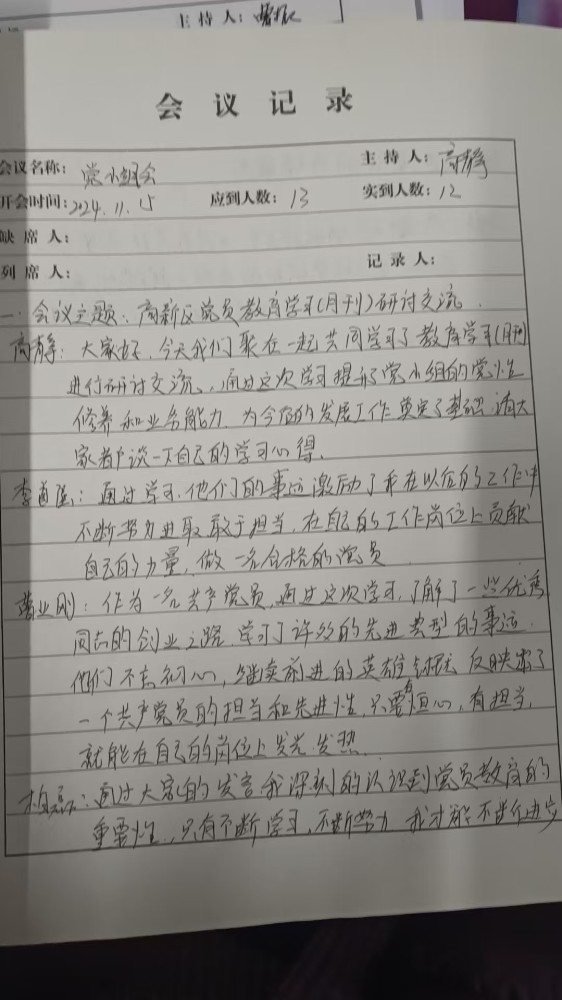 主 持 人：
会 议 记 录
会议名称：党小组会
主 持 人：高静
开会时间：2024.11.15
应到人数：13
实到人数：12
缺 席 人：
列 席 人：
记 录 人：
一. 会议主题：高新区党员教育学习(月刊)研讨交流.
高静：大家好，今天我们聚在一起共同学习了教育学习(月刊
进行研讨交流，通过这次学习提升了党小组的党性
修养和业务能力，为今后的发展工作奠定了基础.请大
家都谈一下自己的学习心得.
通过学习.他们的事迹激励了我在以后的工作中
不断努力进取敢于担当，在自己的工作岗位上贡献
自己的力量，做一名合格的党员
作为一名共产党员，通过这次学习，了解了一些优秀
同志的创业之路，学习了许多的先进典型的事迹.
他们不忘初心，继续前进的英雄气概反映出了
一个共产党员的担当和先进性，只要有恒心，有担当，
就能在自己的岗位上发光.发热.
通过大家的发言我深刻的认识到党员教育的
重要性，只有不断学习，不断努力 我才能不断进步